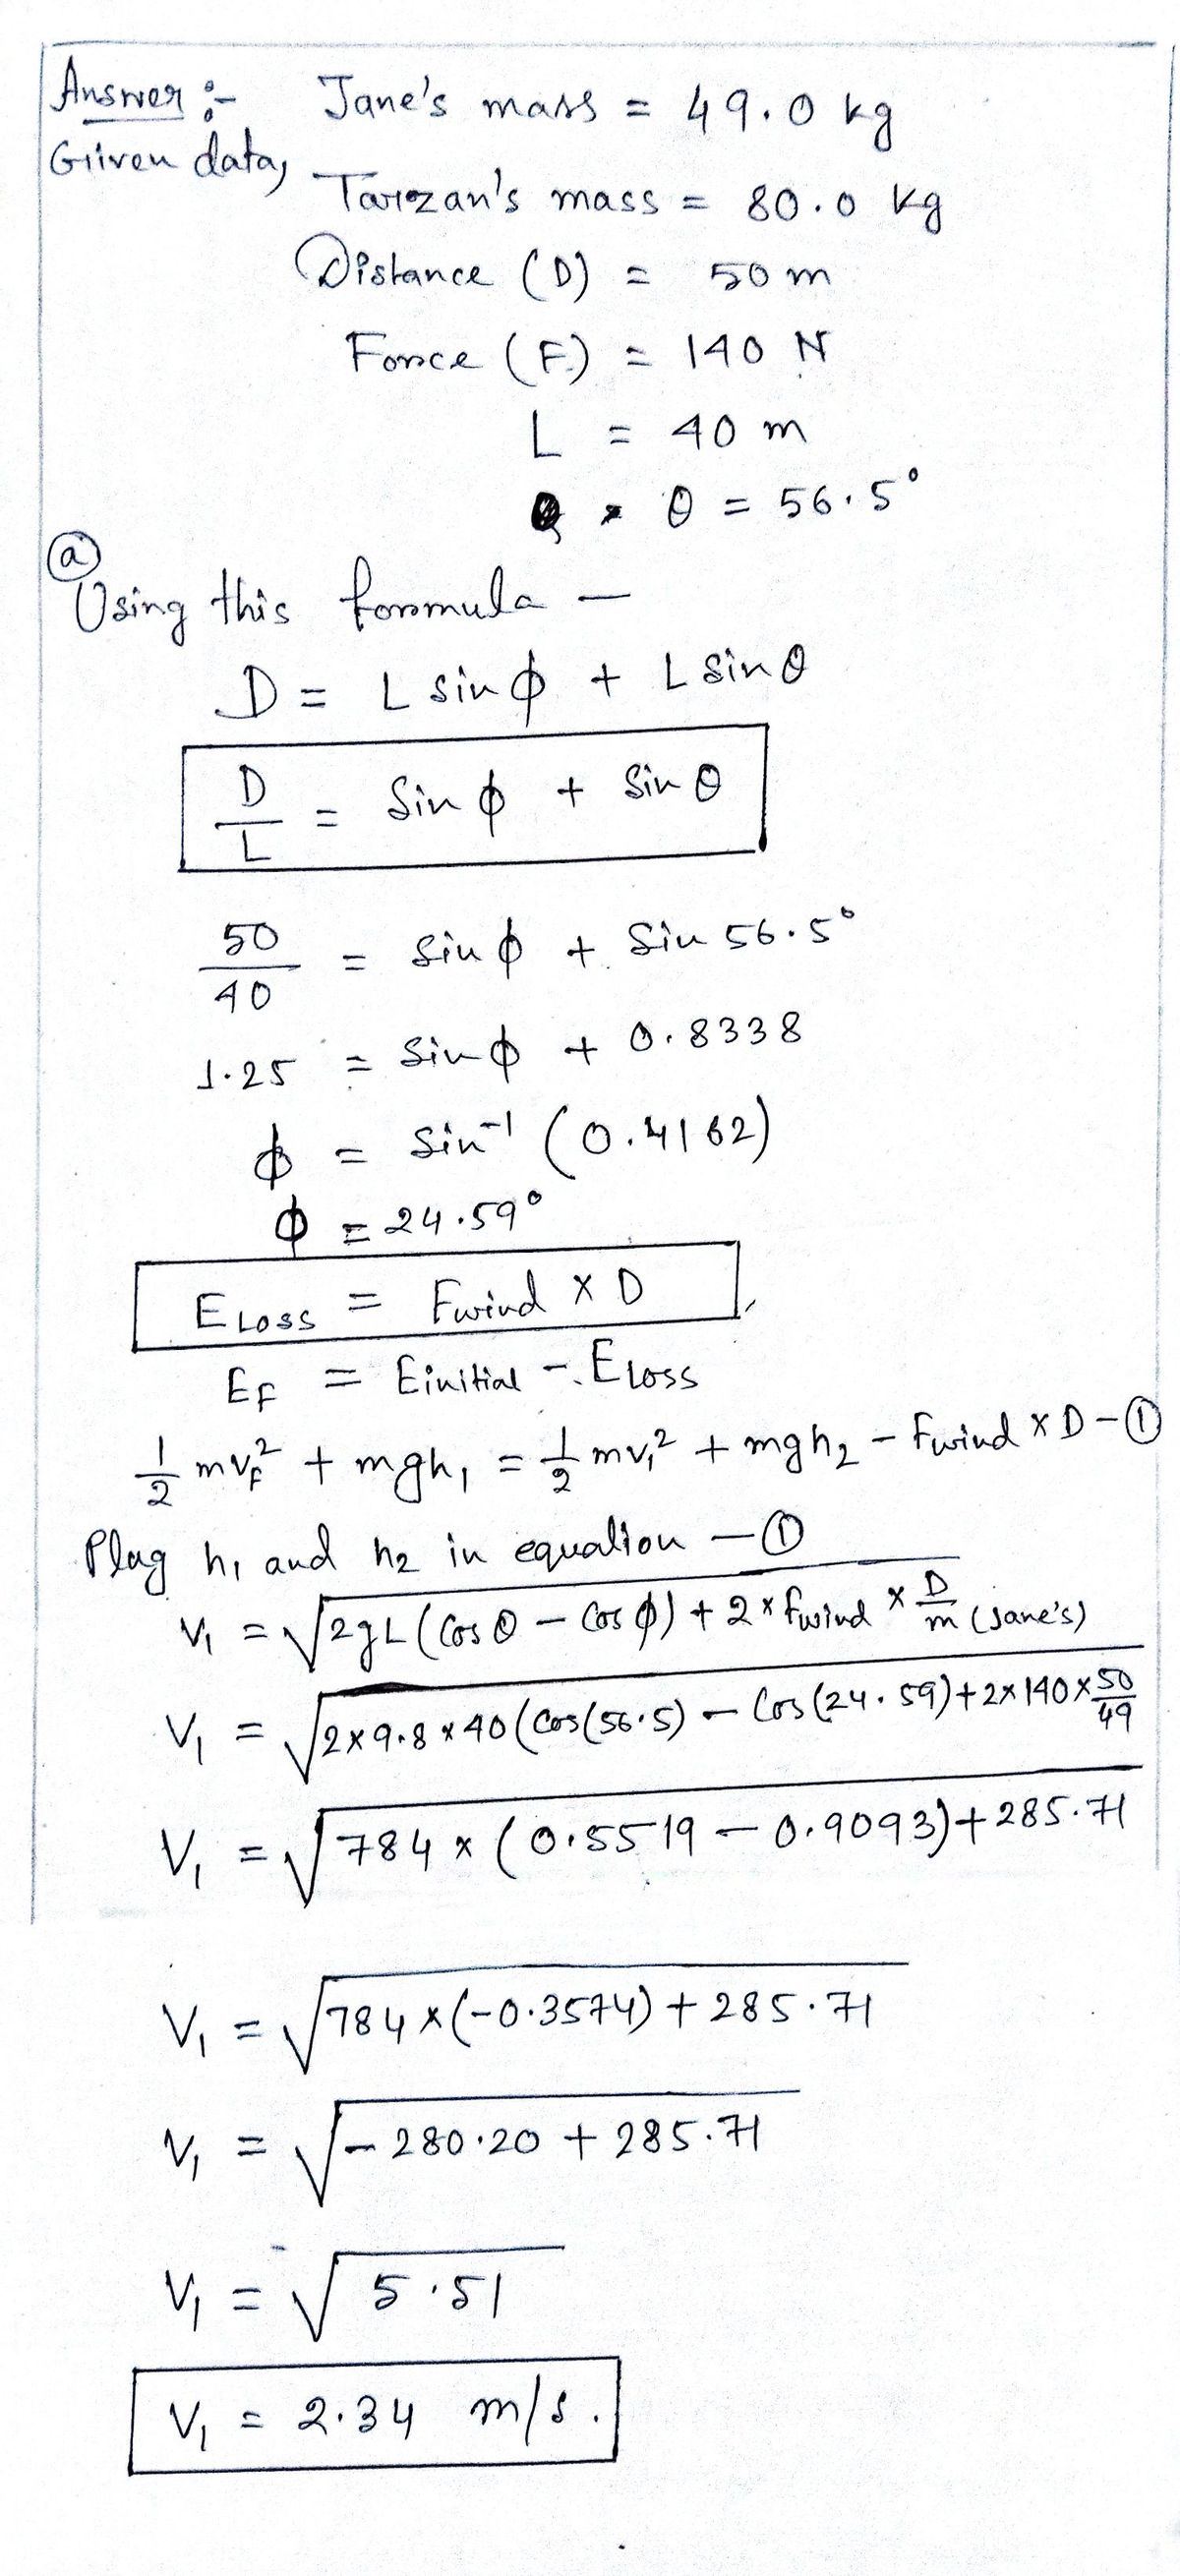 Answer :- Jane's mass = 49.0 kg
Given data,
Tarzan's mass = 80.0 kg
Distance (D) = 50 m
Force (F) = 140 N
L = 40 m
θ = 56.5°
(a)
Using this formula —
D = L sin ϕ + L sin θ
D/L = Sin ϕ + Sin θ
50/40 = Sin ϕ + Sin 56.5°
1.25 = Sin ϕ + 0.8338
ϕ = Sin⁻¹ (0.4162)
ϕ = 24.59°
E Loss = Fwind × D
EF = Einitial - E Loss
1/2 mvF² + mgh₁ = 1/2 mv₁² + mgh₂ - Fwind × D - ①
Plug h₁ and h₂ in equation — ①
V₁ = √2gL (Cos θ - Cos ϕ) + 2 × Fwind × D/m (Jane's)
V₁ = √2×9.8×40 (Cos(56.5) - Cos (24.59) + 2×140×50/49
V₁ = √784 × (0.5519 - 0.9093) + 285.71
V₁ = √784 × (-0.3574) + 285.71
V₁ = √-280.20 + 285.71
V₁ = √5.51
V₁ = 2.34 m/s.